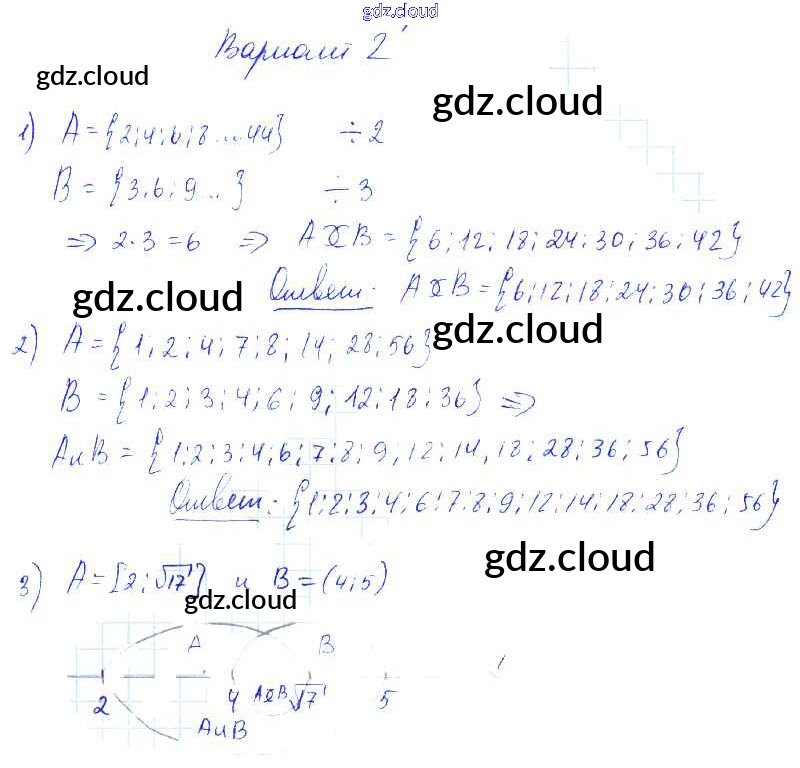 gdz.cloud
Вариант 2
gdz.cloud
gdz.cloud
1) A = {2; 4; 6; 8 ... 44} ÷ 2
B = {3; 6; 9 ...} ÷ 3
⇒ 2·3 = 6 ⇒ A и B = {6; 12; 18; 24; 30; 36; 42}
Ответ: A и B = {6; 12; 18; 24; 30; 36; 42}
gdz.cloud
gdz.cloud
2) A = {1; 2; 4; 7; 8; 14; 28; 56}
B = {1; 2; 3; 4; 6; 9; 12; 18; 36} ⇒
A и B = {1; 2; 3; 4; 6; 7; 8; 9; 12; 14; 18; 28; 36; 56}
Ответ: {1; 2; 3; 4; 6; 7; 8; 9; 12; 14; 18; 28; 36; 56}
gdz.cloud
3) A = [2; √17] и B = (4; 5)
gdz.cloud
A B
2 4 A и B √17 5
A и B